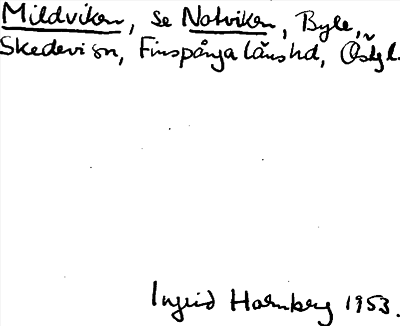 Mildviken, se Notviken, Byle,
Skedevi sn, Finspånga länshd, Östgl.
Ingrid Hornberg 1953.